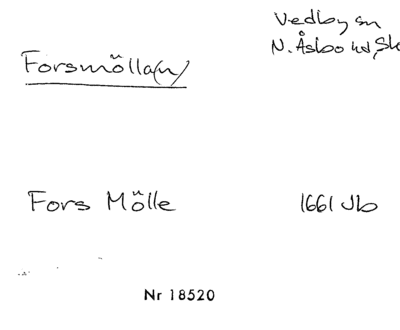 Vedby sn
N. Åsbo hd, Sk
Forsmölla(n)
Fors Mölle 1661 Jb
Nr 18520